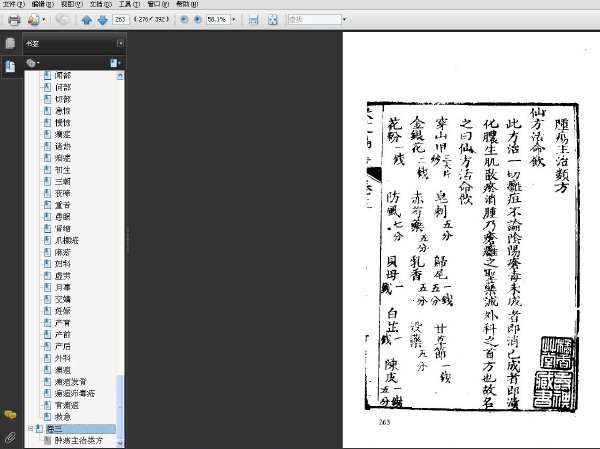 文件(F) 编辑(E) 视图(V) 文档(D) 工具(T) 窗口(W) 帮助(H)
263 (276 / 392) 58.1% 查找
书签
闻部
问部
切部
急惊
慢惊
诸热
初生
三朝
夜啼
重舌
肾缩
妇科
虚劳
月事
交媾
妊娠
产育
产前
产后
外科
救急
卷三
肿疡主治类方
腫瘍主治類方
仙方活命飲
此方治一切癰疽不論陰陽瘡毒未成者即消已成者即潰
化膿生肌散瘀消腫乃瘡癰之聖藥誠外科之首方也故名
之曰仙方活命飲
穿山甲炒三大片 皂刺五分 歸尾一錢五分 甘草節一錢
金銀花二錢 赤芍藥五分 乳香五分 沒藥五分
花粉一錢 防風七分 貝母一錢 白芷一錢 陳皮一錢五分
263